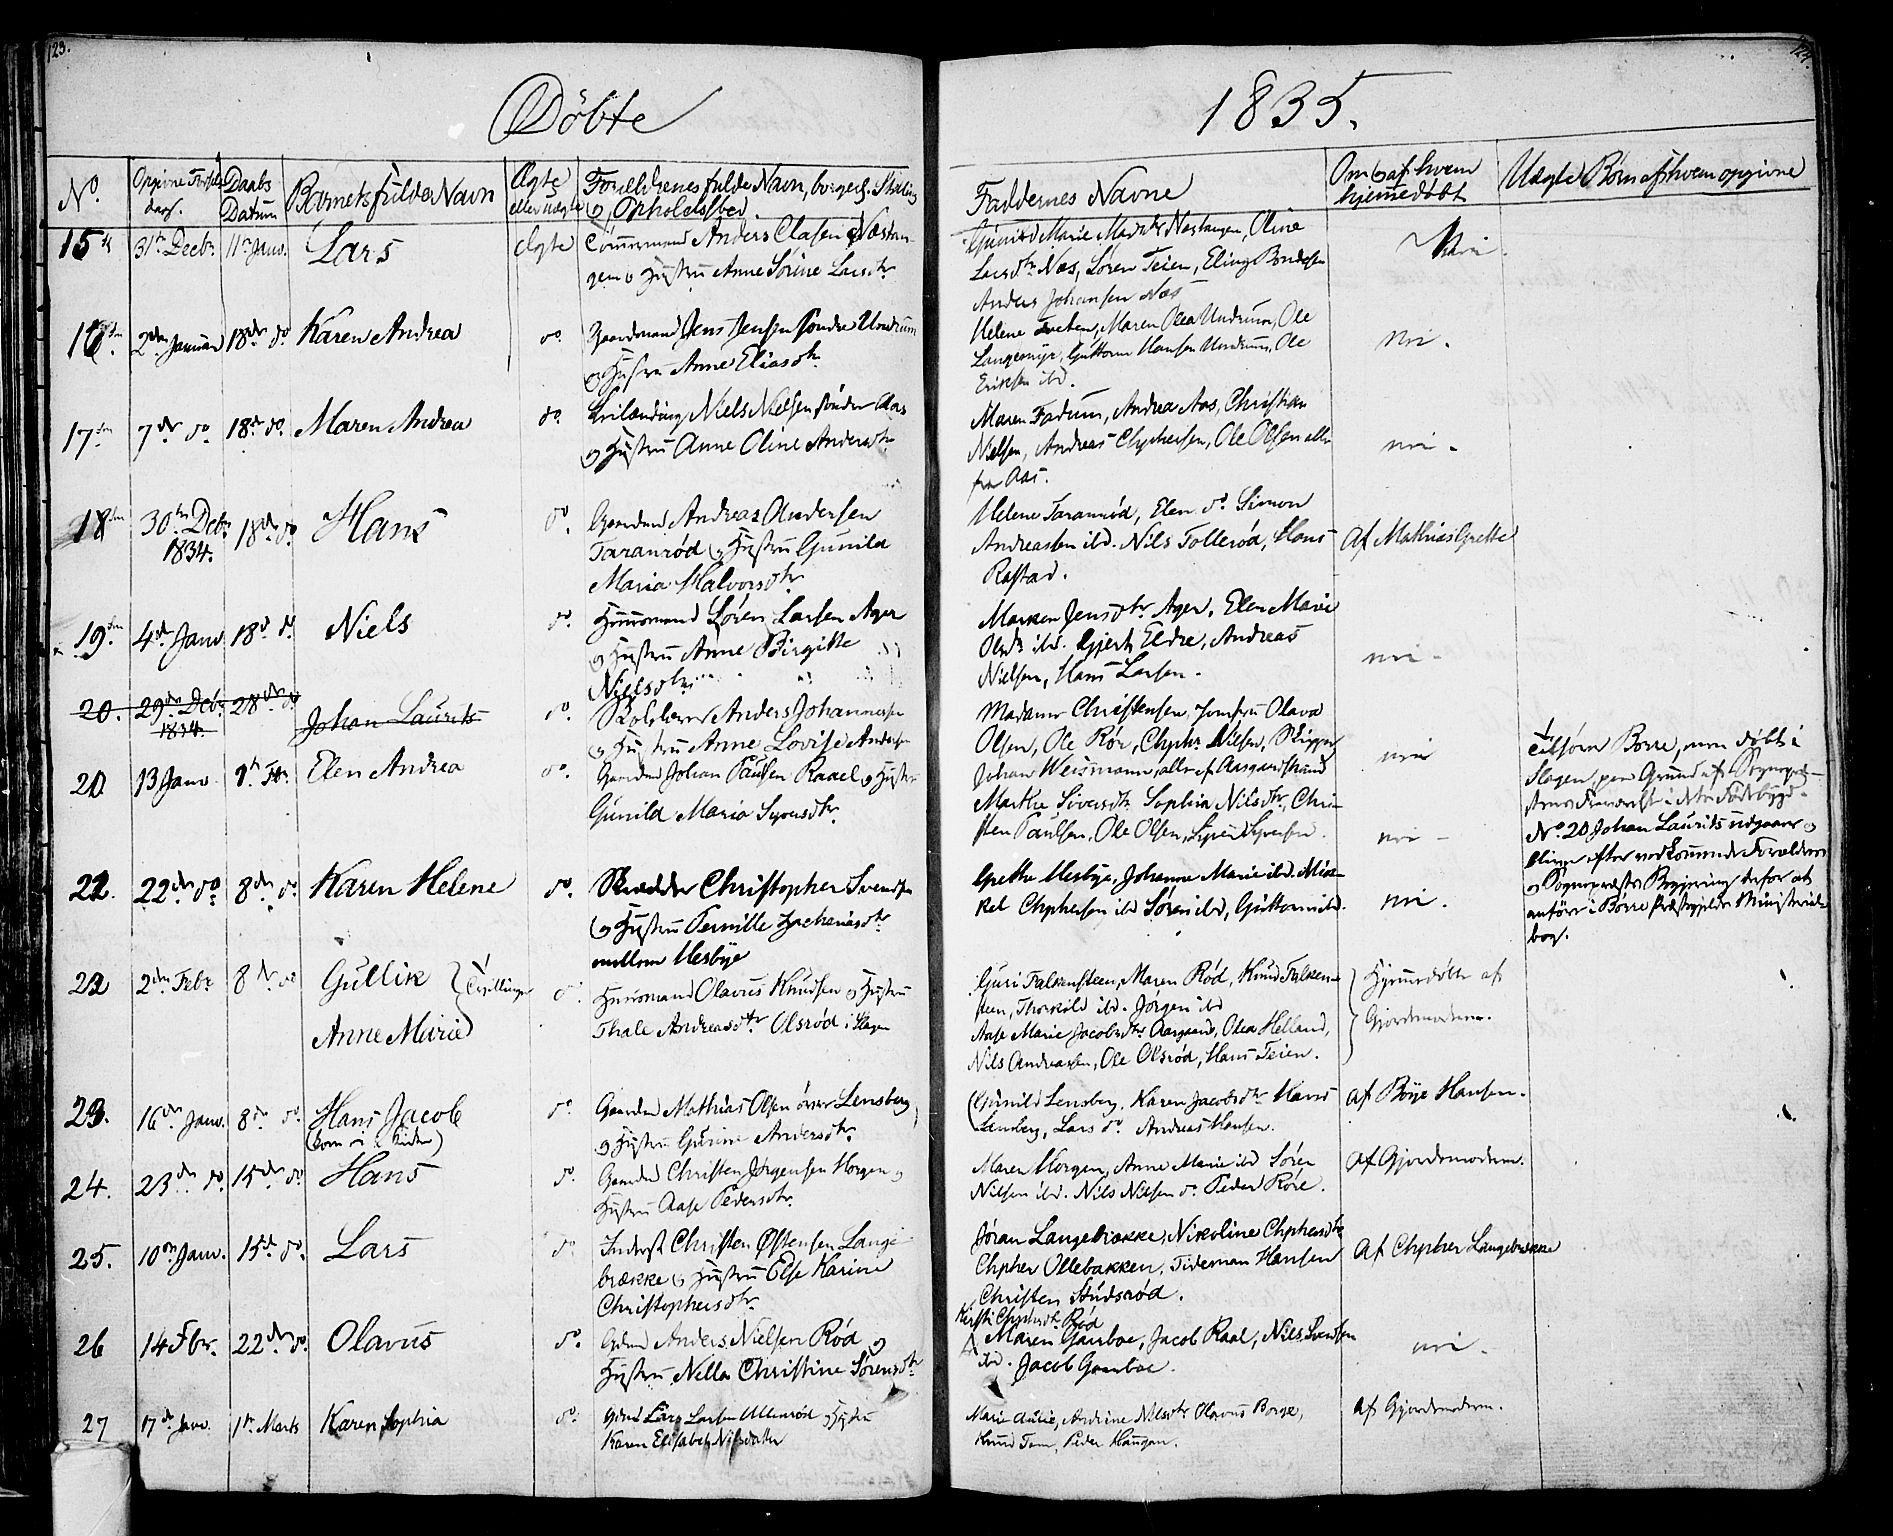 123.
124.
Döbte
1835.
No
Opgivne Föds.
dag.
Daabs
Datum
Barnets fulde Navn
Ægte
eller uægte
Forældrenes fulde Navn, borgerl. Stilling
og Opholdssted.
Faddernes Navne
Om og af hvem
hjemmedöbt
Uægte Börn af hvem opgivne
15de 31te Decbr. 11te Janv. Lars Ægte Tömmermand Anders Olasen Næstan-
gen og Hustru Anne Sörine Larsdtr
Gunild Marie Madsdtr Nestangen, Oline
Larsdtr Næs, Sören Teien, Eling Bendixen
Anders Johansen Næs
Nei.
16den 2den Januar 18de do Karen Andrea do. Gaardmand Jens Jensen söndre Undrum
og Hustru Anne Eliasdtr
Helene Tveten, Maren Olea Undrum, Ole
Langemyr, Guttorm Hansen Undrum, Ole
Eriksen ibd.
nei.
17den 7de do 18de do. Maren Andrea do. Qvilænding Niels Nielsen söndre Aas
og Hustru Anne Oline Andersdtr
Maren Fadum, Andrea Aas, Christian
Nielsen, Andreas Chphersen, Ole Olsen alle
fra Aas.
nei.
18den 30te Decbr.
1834.
18de do. Hans do. Gaardmd Andreas Andersen
Taranröd og Hustru Gunild
Maria Halvorsdtr
Helene Taranröd, Elen do. Simon
Andreassen ibd. Nils Tolleröd, Hans
Rastad.
Af Mathias Grette
19den 4de Janv 18de do Niels do. Huusmand Sören Larsen Ager
og Hustru Anne Birgitte
Nielsdtr
Marken Jensdtr Ager, Elen Marie
Olsdtr ibd. Gjert Eldre, Andreas
Nielsen, Hans Larsen.
nei.
20. 29de Decbr
1834.
28de do Johan Laurits do. Anders Johannesen
og Hustru Anne Lovise Andersen
Madame Christensen, Jomfru Olava
Olsen, Ole Rör, Chphr Nilsen, Skipper
Johan Weismann, alle af Aasgaardstrand
nei
Tilhörer Borre, men döbt i
Slagen, paa Grund af Sognepræ-
stens Fraværelse i dette Födebygd.
No. 20 Johan Laurits udgaar og
bliver efter vedkommende Forældres
og Sognepræstes Begjering derfor at
anföre i Borre Præstegjelds Ministerial-
bog.
20 13 Janv 1te Fbr. Elen Andrea do. Gaardmd Johan Paulsen Raael og Hustru
Gunild Maria Syversdtr.
Marthe Siversdtr. Sophia Nilsdtr, Chri-
sten Paulsen, Ole Olsen, Syver Syversen.
nei
21. 22de do 8de do. Karen Helene do. Skrædder Christopher Svendsen
og Hustru Pernille Zachariasdtr
mellem Hesbye
Grethe Hesbye, Johanne Marie ibd. Mi-
kel Chphersen ibd Sören ibd, Guttorm ibd.
nei.
22 2den Febr 8de do Gullik } Tvillinger
Anne Marie
do. Huusmand Olavus Knudsen og Hustru
Thale Andreasdtr Olsröd i Slagen
Guri Falkensteen, Maren Röd, Knud Falken-
steen, Thorkild ibd. Jörgen ibd
Aase Marie Jacobsdtr Aargaard, Olea Helland,
Nils Andreassen, Ole Olsröd, Hans Teien.
Hjemmedöbte af
Gjordemoderen.
23. 16de Janv. 8de do. Hans Jacob do. Gaardmd Mathias Olsen övre Lensberg
og Hustru Gurine Andersdtr.
Gunild Lensberg, Karen Jacobsdtr Hans
Lensberg, Lars do. Andreas Hansen.
af Böye Hansen.
24. 23de do. 15de do Hans do. Gaardmd Christen Jörgensen Horgen og
Hustru Aase Pedersdtr.
Maren Horgen, Anne Marie ibd Sören
Nilsen ibd. Nils Nilsen do. Peder Röre.
Af Gjordemoderen.
25. 10de Janv. 15de do. Lars do. Inderst Christen Östensen Lange-
brække og Hustru Else Karine
Christophersdtr.
Jöran Langebrække, Nikoline Chphersdtr
Chpher Ollebakken, Tideman Hansen
Christen Studsröd.
Af Chpher Langebrække
26 14 Fbr. 22de do. Olavus do. Gdmd Anders Nielsen Röd og
Hustru Nella Christine Sörensdtr
Kirsti Chphersdtr. Röd
Maren Gamboe, Jacob Raal, Nils Svendsen
ibd. Jacob Gamboe.
nei.
27 17de Janv. 1te Marts Karen Sophia do. Gdmd Lars Larsen Ulleröd og Hustru
Karen Elisabeth Nilsdatter
Maria Aulie, Andrine Nilsdtr Olavus Borge,
Knud Tem, Peder Haugen.
Af Gjordemoderen.